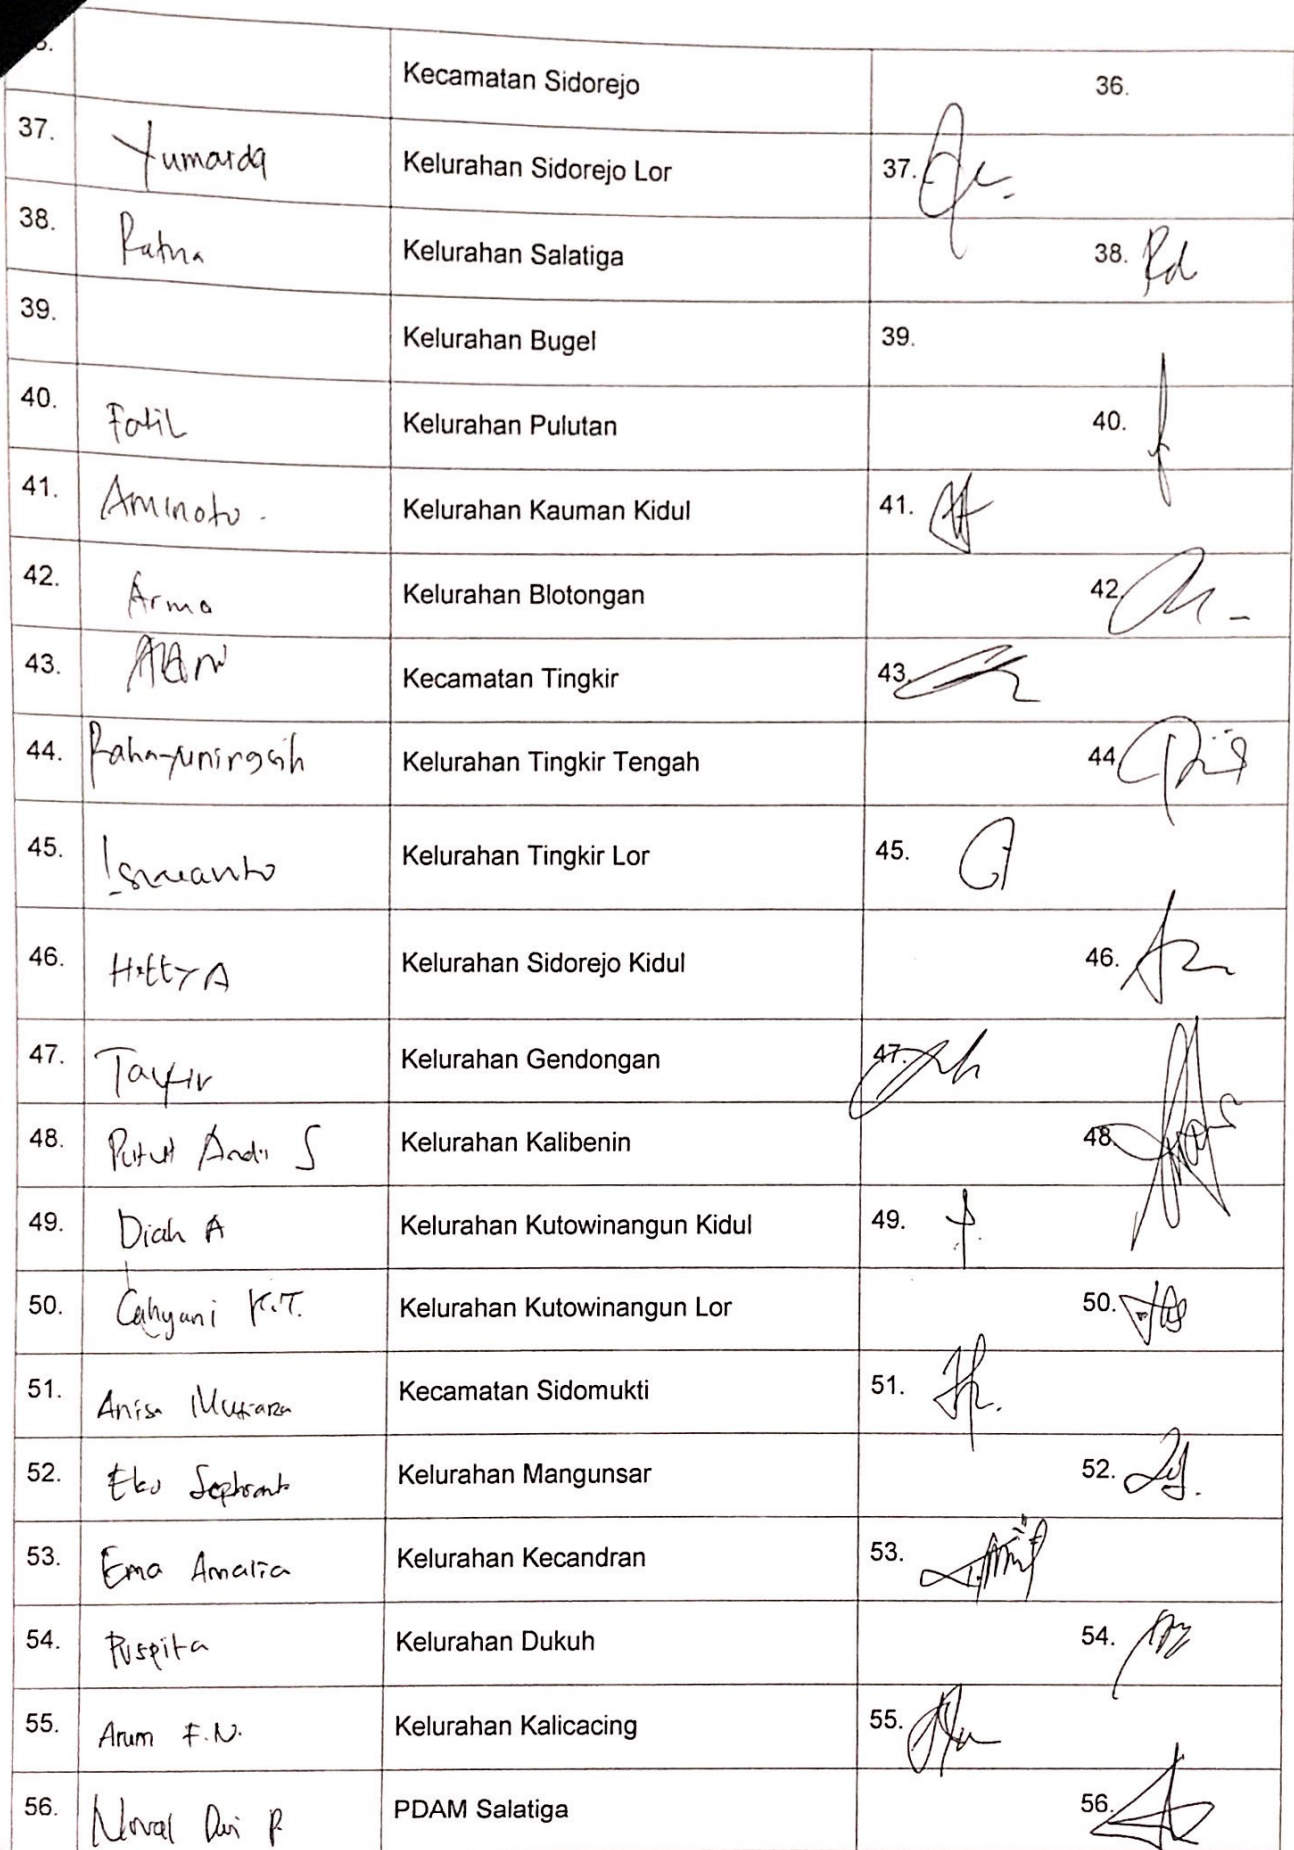 Kecamatan Sidorejo 36.
37. Yumarda Kelurahan Sidorejo Lor 37.
38. Ratna Kelurahan Salatiga 38. Rd
39. Kelurahan Bugel 39.
40. Fatil Kelurahan Pulutan 40.
41. Aminoto. Kelurahan Kauman Kidul 41.
42. Arma Kelurahan Blotongan 42.
43. Kecamatan Tingkir 43.
44. Rahayuningsih Kelurahan Tingkir Tengah 44
45. Ismuanto Kelurahan Tingkir Lor 45.
46. Hetty A Kelurahan Sidorejo Kidul 46.
47. Kelurahan Gendongan 47.
48. Putut Andi S Kelurahan Kalibenin 48.
49. Diah A Kelurahan Kutowinangun Kidul 49.
50. Cahyani K.T. Kelurahan Kutowinangun Lor 50.
51. Anisa Mutiara Kecamatan Sidomukti 51.
52. Eko Kelurahan Mangunsar 52.
53. Ema Amalia Kelurahan Kecandran 53.
54. Puspita Kelurahan Dukuh 54.
55. Arum F.N. Kelurahan Kalicacing 55.
56. Noval Dwi P. PDAM Salatiga 56.